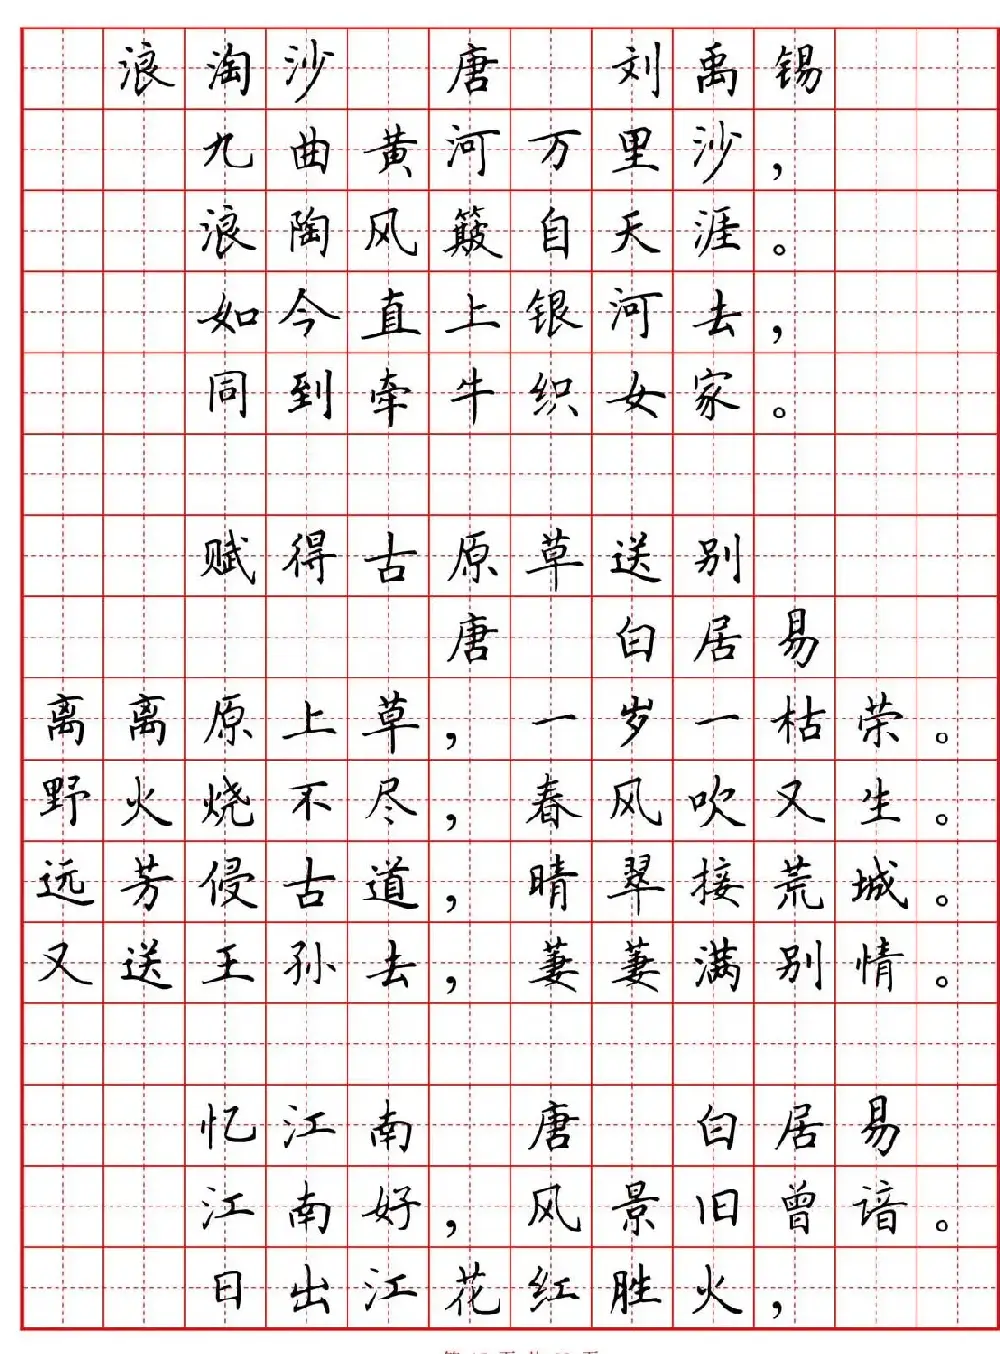 浪淘沙 唐 刘禹锡
九曲黄河万里沙，
浪陶风簸自天涯。
如今直上银河去，
同到牵牛织女家。
赋得古原草送别
唐 白居易
离离原上草，一岁一枯荣。
野火烧不尽，春风吹又生。
远芳侵古道，晴翠接荒城。
又送王孙去，萋萋满别情。
忆江南 唐 白居易
江南好，风景旧曾谙。
日出江花红胜火，